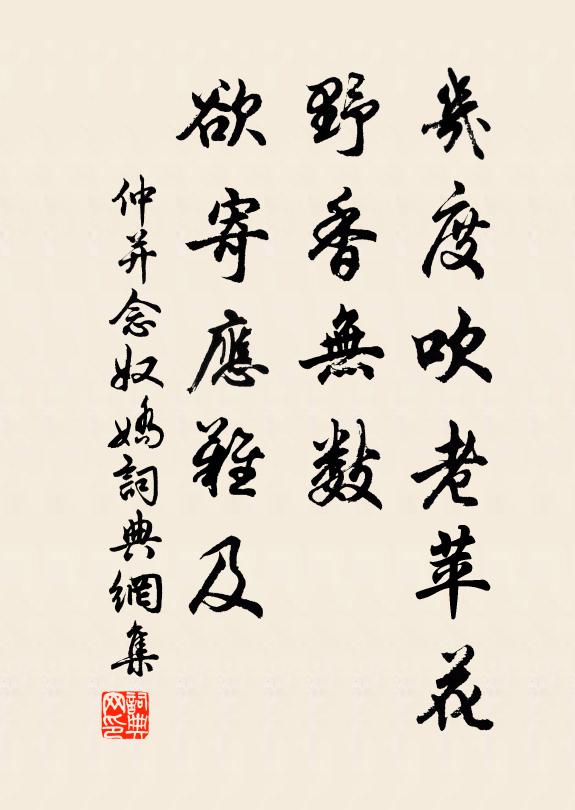 幾度吹老苹花
野香無數
欲寄應難及
仲并念奴嬌詞典網集
詞典网印